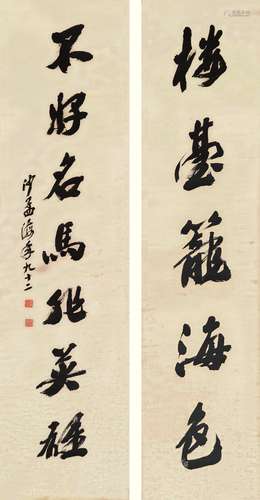 楼臺籠海色
不好名馬非英雄
沙孟海年九十二